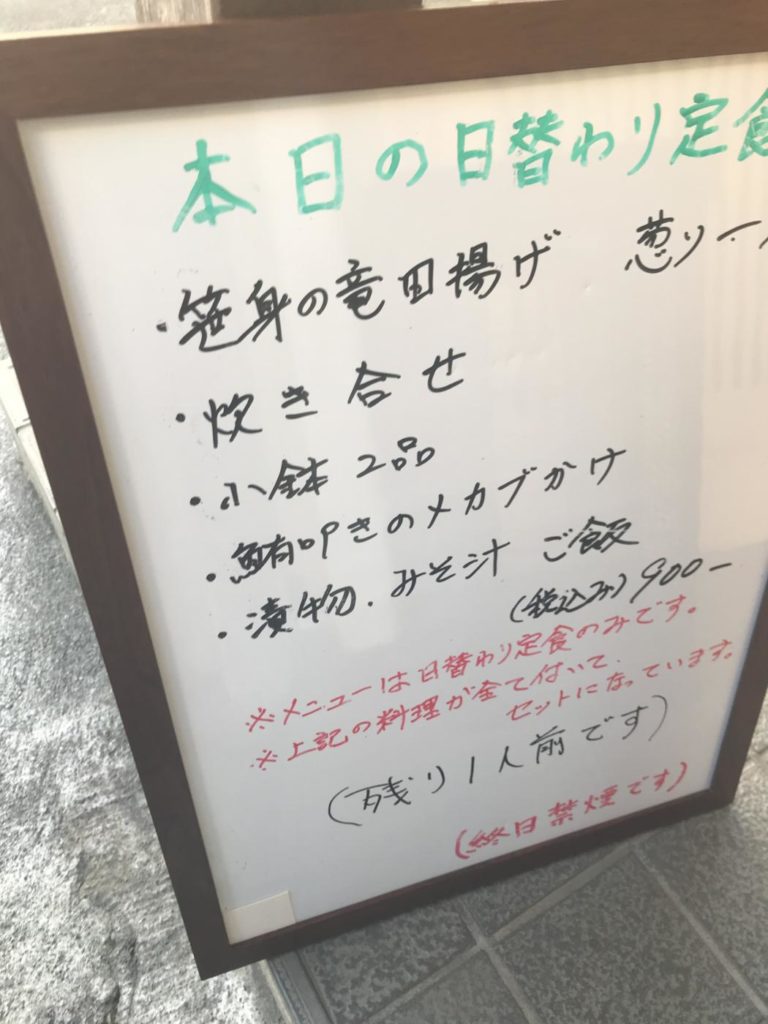 本日の日替わり定食
・笹身の竜田揚げ 葱ソー
・炊き合せ
・小鉢 2品
・鮪叩きのメカブかけ
・漬物.みそ汁 ご飯
(税込み)900-
※メニューは日替わり定食のみです。
※上記の料理が全て付いて、
セットになっています。
(残り1人前です)
(終日禁煙です)